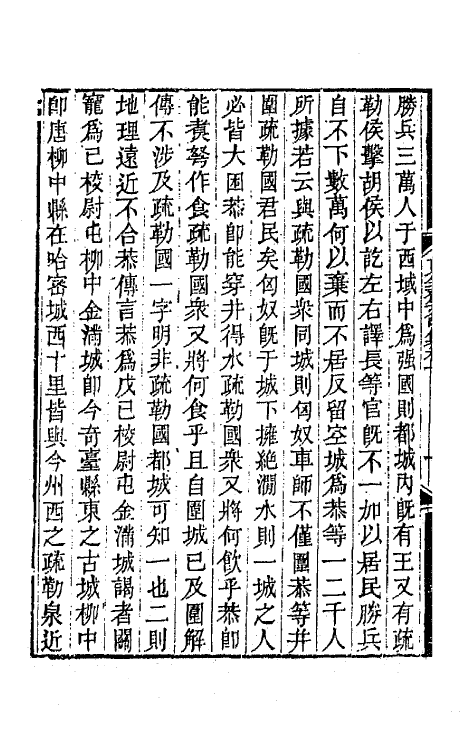 勝兵三萬人于西域中爲强國則都城内旣有王又有疏
勒侯擊胡侯以訖左右譯長等官旣不一加以居民勝兵
自不下數萬何以棄而不居反留空城爲恭等一二千人
所據若云與疏勒國衆同城則匈奴車師不僅圍恭等并
圍疏勒國君民矣匈奴旣于城下擁絶㵎水則一城之人
必皆大困恭卽能穿井得水疏勒國衆又將何飲乎恭卽
能煑弩作食疏勒國衆又將何食乎且自圍城已及圍解
傳不涉及疏勒國一字明非疏勒國都城可知一也二則
地理遠近不合恭傳言恭爲戊己校尉屯金滿城謁者關
寵爲己校尉屯柳中金滿城卽今奇臺縣東之古城柳中
卽唐柳中縣在哈密城西十里皆與今州西之疏勒泉近